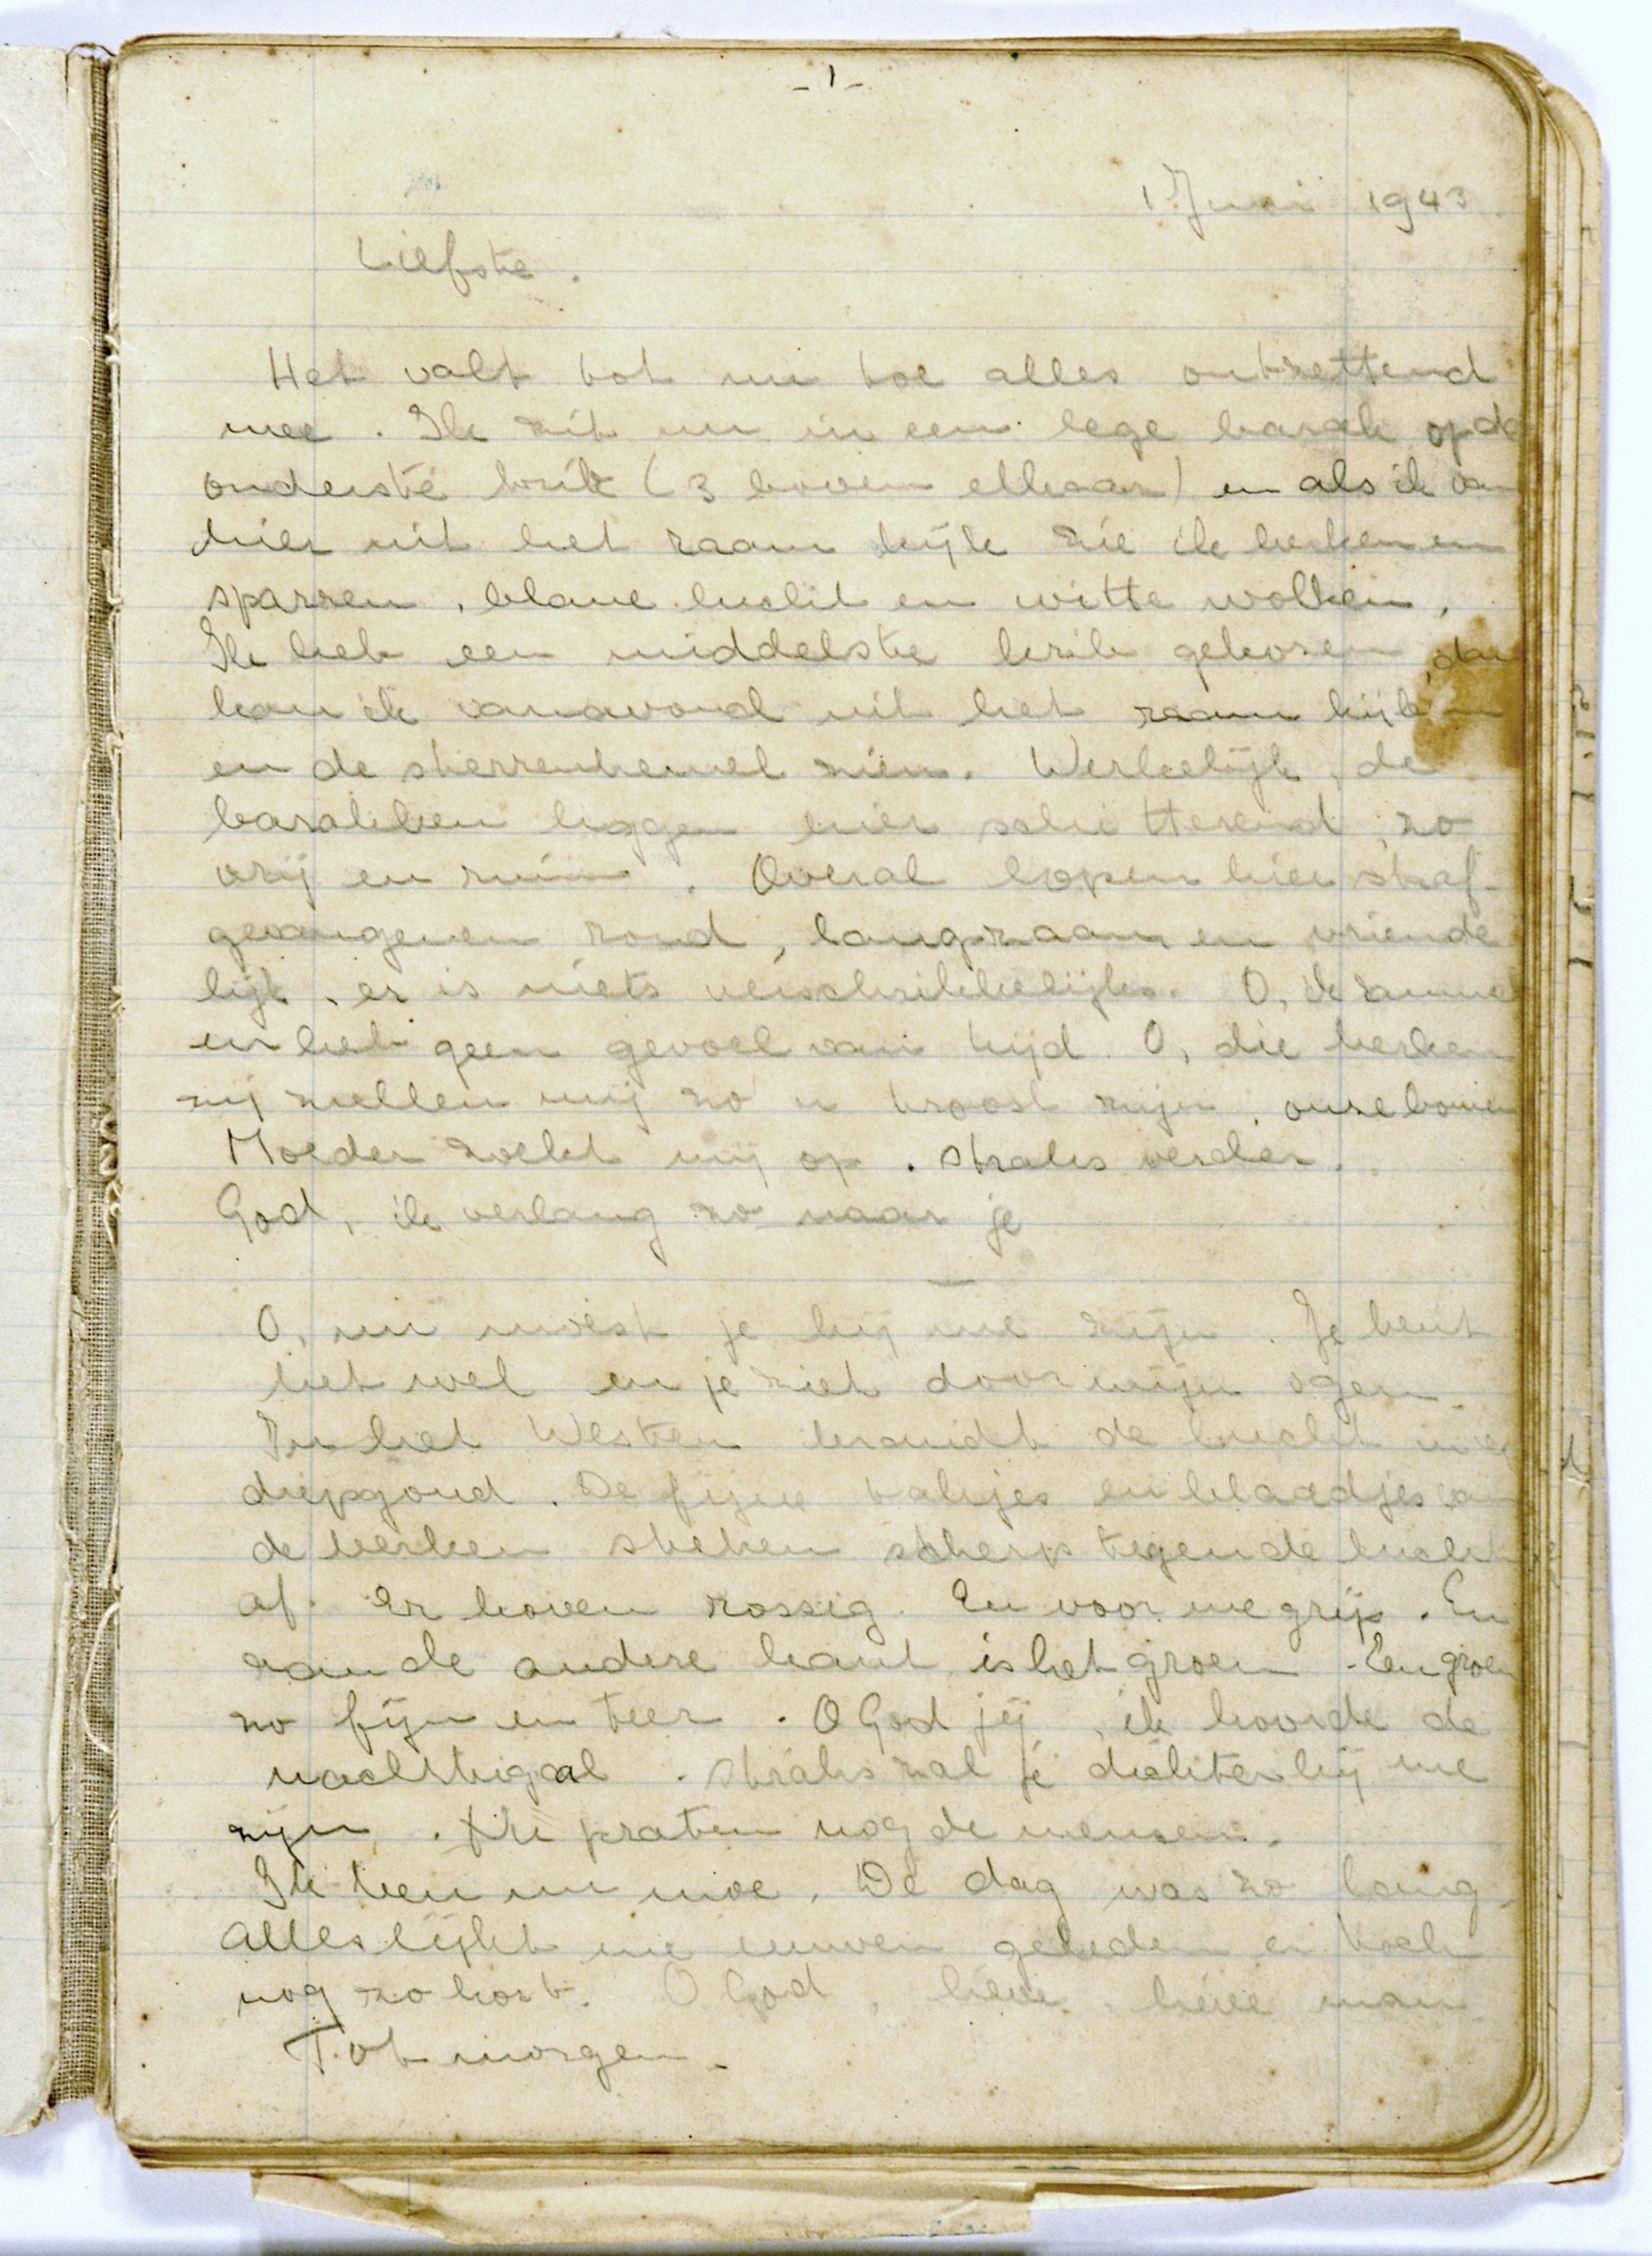 - 1 -
1 Juni 1943
Liefste.
Het valt tot nu toe alles ontzettend
mee. Ik zit nu in een lege barak op de
onderste brik (3 boven elkaar) en als ik van
hier uit het raam kijk zie ik berken en
sparren, blauwe lucht en witte wolken.
Ik heb een middelste krib gekozen, dan
kan ik vanavond uit het raam kijken
en de sterrenhemel zien. Werkelijk, de
barakken liggen hier schitterend, zo
vrij en ruim. Overal lopen hier straf-
gevangenen rond, langzaam en vriende
lijk, er is niets verschrikkelijks. O, ik
en heb geen gevoel van tijd. O, die berken
zij zullen mij zo'n troost zijn, onze bomen
Moeder zoekt mij op. Straks verder.
God, ik verlang zo naar je
O, nu moest je bij me zijn. Je bent
het wel en je ziet door mijn ogen.
In het Westen brandt de lucht in een
diepgoud. De fijne takjes en blaadjes van
de berken steken scherp tegen de lucht
af. Er boven rossig. En voor me grijs. En
aan de andere kant is het groen. Een groen
zo fijn en teer. O God jij, ik hoorde de
nachtegaal. Straks zal je dichter bij me
zijn. Nu praten nog de mensen.
Ik ben nu moe. De dag was zo lang.
Alles lijkt me eeuwen geleden en toch
nog zo kort. O God, lieve, lieve man
Tot morgen.